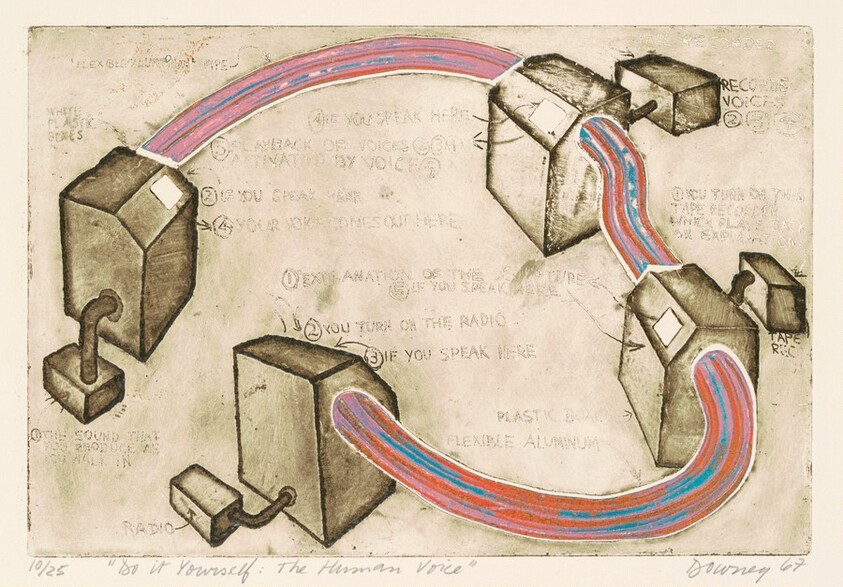 "FLEXIBLE ALUMINUM" PIPE
WHITE
PLASTIC
BOXES
④ IF YOU SPEAK HERE
⑤ PLAYBACK OF VOICES ②③④
ACTIVATED BY VOICE ⑤
② IF YOU SPEAK HEAR
④ YOUR VOICE COMES OUT HERE
RECORDS
VOICES
② ③ ④
① YOU TURN ON THIS
TAPE RECORDER
WHICH PLAYS BACK
AN
① EXPLANATION OF THE SCULPTURE
⑤ IF YOU SPEAK HERE
② YOU TURN ON THE RADIO
③ IF YOU SPEAK HERE
TAPE
REC
PLASTIC BOX
FLEXIBLE ALUMINUM
① THE SOUND THAT
YOU PRODUCE AS
YOU WALK IN
RADIO
10/25 "Do it Yourself: The Human Voice" Downey 67